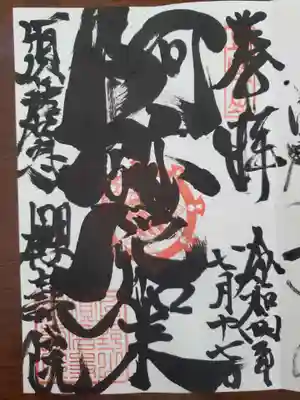 奉拜
令和四年
七月十七日
阿弥陀如来
須磨寺 櫻壽院